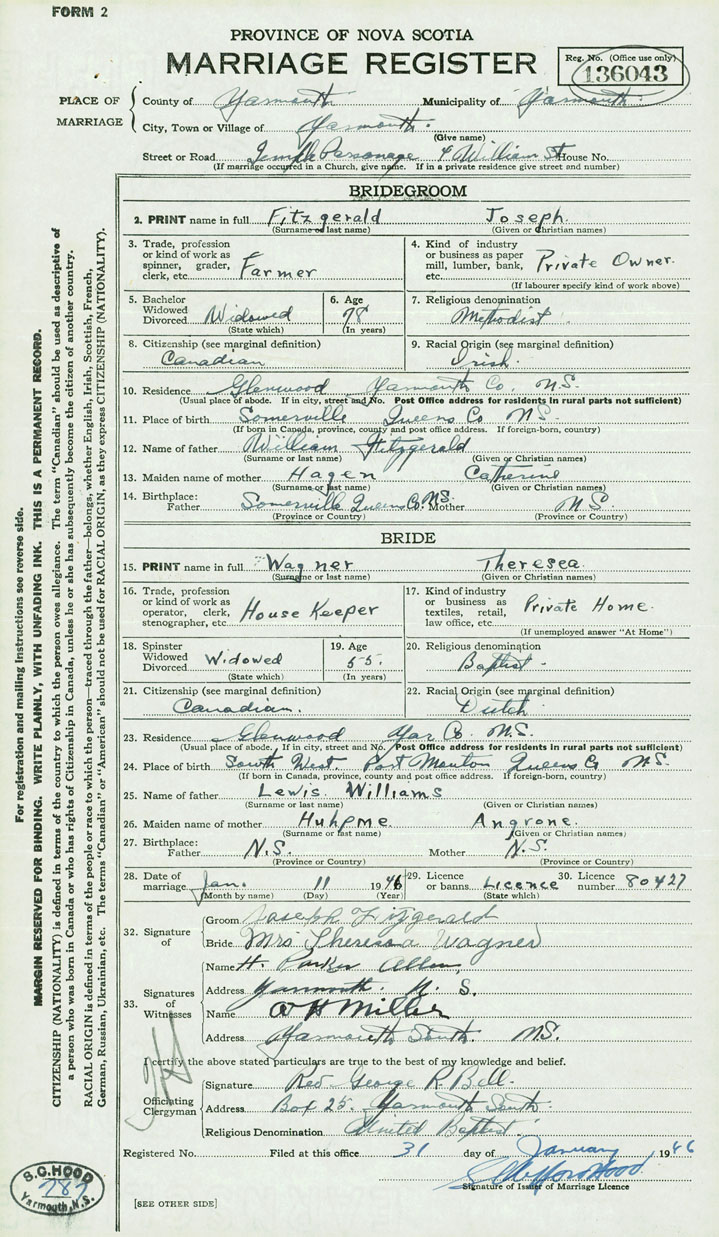 FORM 2
PROVINCE OF NOVA SCOTIA
MARRIAGE REGISTER
Reg. No. (Office use only)
136043
PLACE OF MARRIAGE
County of Yarmouth Municipality of Yarmouth.
City, Town or Village of Yarmouth.
(Give name)
Street or Road Temple Parsonage 4 William St House No.
(If marriage occurred in a Church, give name. If in a private residence give street and number)
BRIDEGROOM
2. PRINT name in full Fitzgerald Joseph.
(Surname or last name) (Given or Christian names)
3. Trade, profession or kind of work as spinner, grader, clerk, etc. Farmer
4. Kind of industry or business as paper mill, lumber, bank, etc. Private Owner.
(If labourer specify kind of work above)
5. Bachelor Widowed Divorced Widowed
(State which)
6. Age 78
(In years)
7. Religious denomination
Methodist.
8. Citizenship (see marginal definition)
Canadian
9. Racial Origin (see marginal definition)
Irish.
10. Residence Glenwood Yarmouth Co. N.S.
(Usual place of abode. If in city, street and No. Post Office address for residents in rural parts not sufficient)
11. Place of birth Somerville Queens Co N.S.
(If born in Canada, province, county and post office address. If foreign-born, country)
12. Name of father William Fitzgerald
(Surname or last name) (Given or Christian names)
13. Maiden name of mother Hagen Catherine
(Surname or last name) (Given or Christian names)
14. Birthplace: Father Somerville Queens Co. N.S. Mother N.S.
(Province or Country) (Province or Country)
BRIDE
15. PRINT name in full Wagner Theresea.
(Surname or last name) (Given or Christian names)
16. Trade, profession or kind of work as operator, clerk, stenographer, etc. House Keeper
17. Kind of industry or business as textiles, retail, law office, etc. Private Home.
(If unemployed answer "At Home")
18. Spinster Widowed Divorced Widowed
(State which)
19. Age 55.
(In years)
20. Religious denomination
Baptist.
21. Citizenship (see marginal definition)
Canadian.
22. Racial Origin (see marginal definition)
Dutch
23. Residence Glenwood Yar Co. N.S.
(Usual place of abode. If in city, street and No. Post Office address for residents in rural parts not sufficient)
24. Place of birth South West Port Mouton Queens Co N.S.
(If born in Canada, province, county and post office address. If foreign-born, country)
25. Name of father Lewis Williams
(Surname or last name) (Given or Christian names)
26. Maiden name of mother Huhpme Angrone.
(Surname or last name) (Given or Christian names)
27. Birthplace: Father N.S. Mother N.S.
(Province or Country) (Province or Country)
28. Date of marriage Jan. 11 1946
(Month by name) (Day) (Year)
29. Licence or banns Licence
(State which)
30. Licence number 80427
32. Signature of
Groom Joseph Fitzgerald
Bride Mrs Theresa Wagner
33. Signatures of Witnesses
Name H. Parker Allen,
Address Yarmouth. N. S.
Name W H Miller
Address Yarmouth South. N.S.
I certify the above stated particulars are true to the best of my knowledge and belief.
Officiating Clergyman
Signature Rev George R. Bell.
Address Box 25. Yarmouth South.
Religious Denomination United Baptist
Registered No. Filed at this office 31 day of January 1946
Signature of Issuer of Marriage Licence
[SEE OTHER SIDE]
S.C. HOOD
287
Yarmouth, N.S.
For registration and mailing instructions see reverse side.
MARGIN RESERVED FOR BINDING. WRITE PLAINLY, WITH UNFADING INK. THIS IS A PERMANENT RECORD.
CITIZENSHIP (NATIONALITY) is defined in terms of the country to which the person owes allegiance. The term "Canadian" should be used as descriptive of
a person who was born in Canada or who has rights of Citizenship in Canada, unless he or she has subsequently become the citizen of another country.
RACIAL ORIGIN is defined in terms of the people or race to which the person—traced through the father—belongs, whether English, Irish, Scottish, French,
German, Russian, Ukrainian, etc. The terms "Canadian" or "American" should not be used for RACIAL ORIGIN, as they express CITIZENSHIP (NATIONALITY).